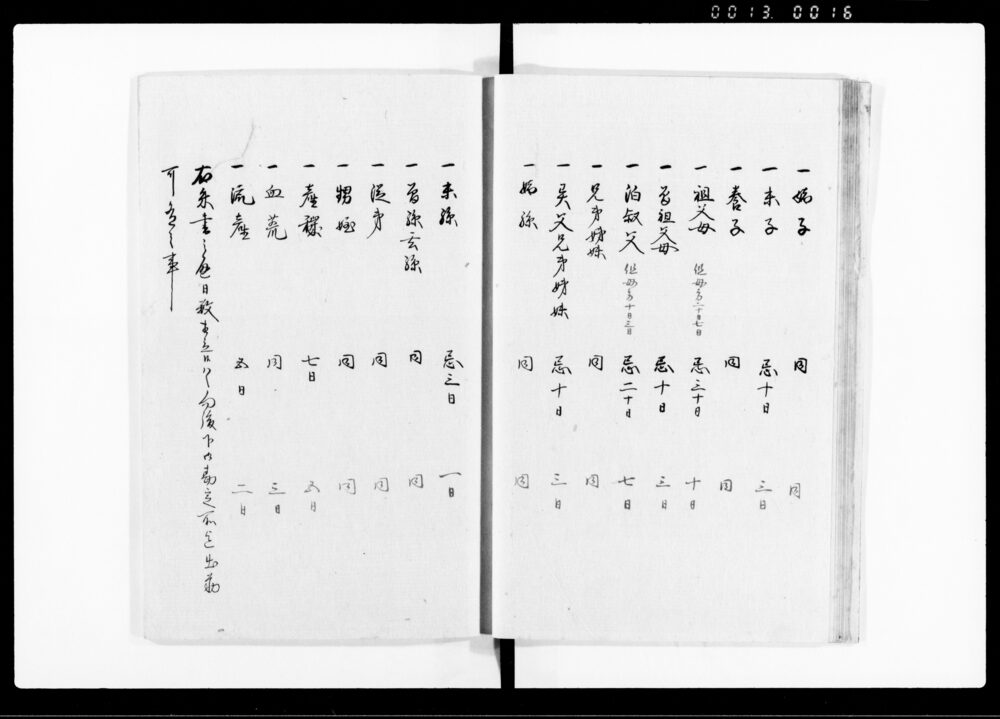 0013. 0016
一 嫡子 同 同
一 末子 忌十日 三日
一 養子 同 同
一 祖父母 但母方二十日七日 忌三十日 十日
一 曽祖父母 忌十日 三日
一 伯叔父 但母方十日三日 忌二十日 七日
一 兄弟姉妹 同 同
一 異父兄弟姉妹 忌十日 三日
一 嫡孫 同 同
一 末孫 忌三日 一日
一 曽孫玄孫 同 同
一 従弟 同 同
一 甥姪 同 同
一 産穢 七日 五日
一 血荒 同 三日
一 流産 五日 二日
右条書之通日数 向後下御勘定所迄出勤
可有之事